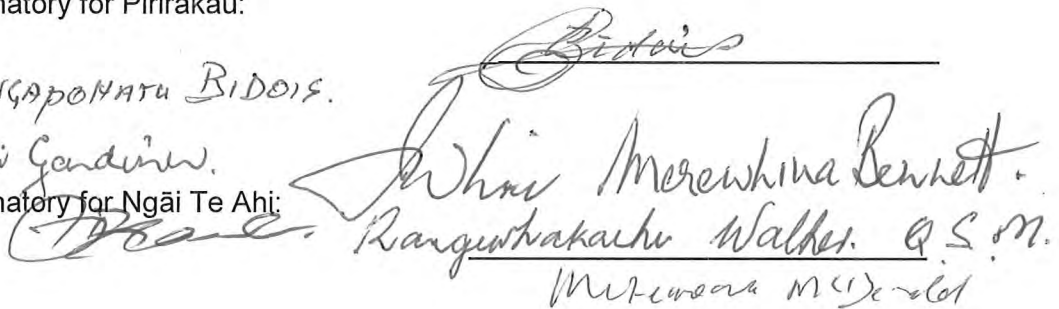 natory for Pirirākau:
Bidois
BIDOIS.
Gardiner.
Whine Merewhina Bennett.
natory for Ngāi Te Ahi:
Rangiwhakaehu Walker. Q.S.M.
McDonald